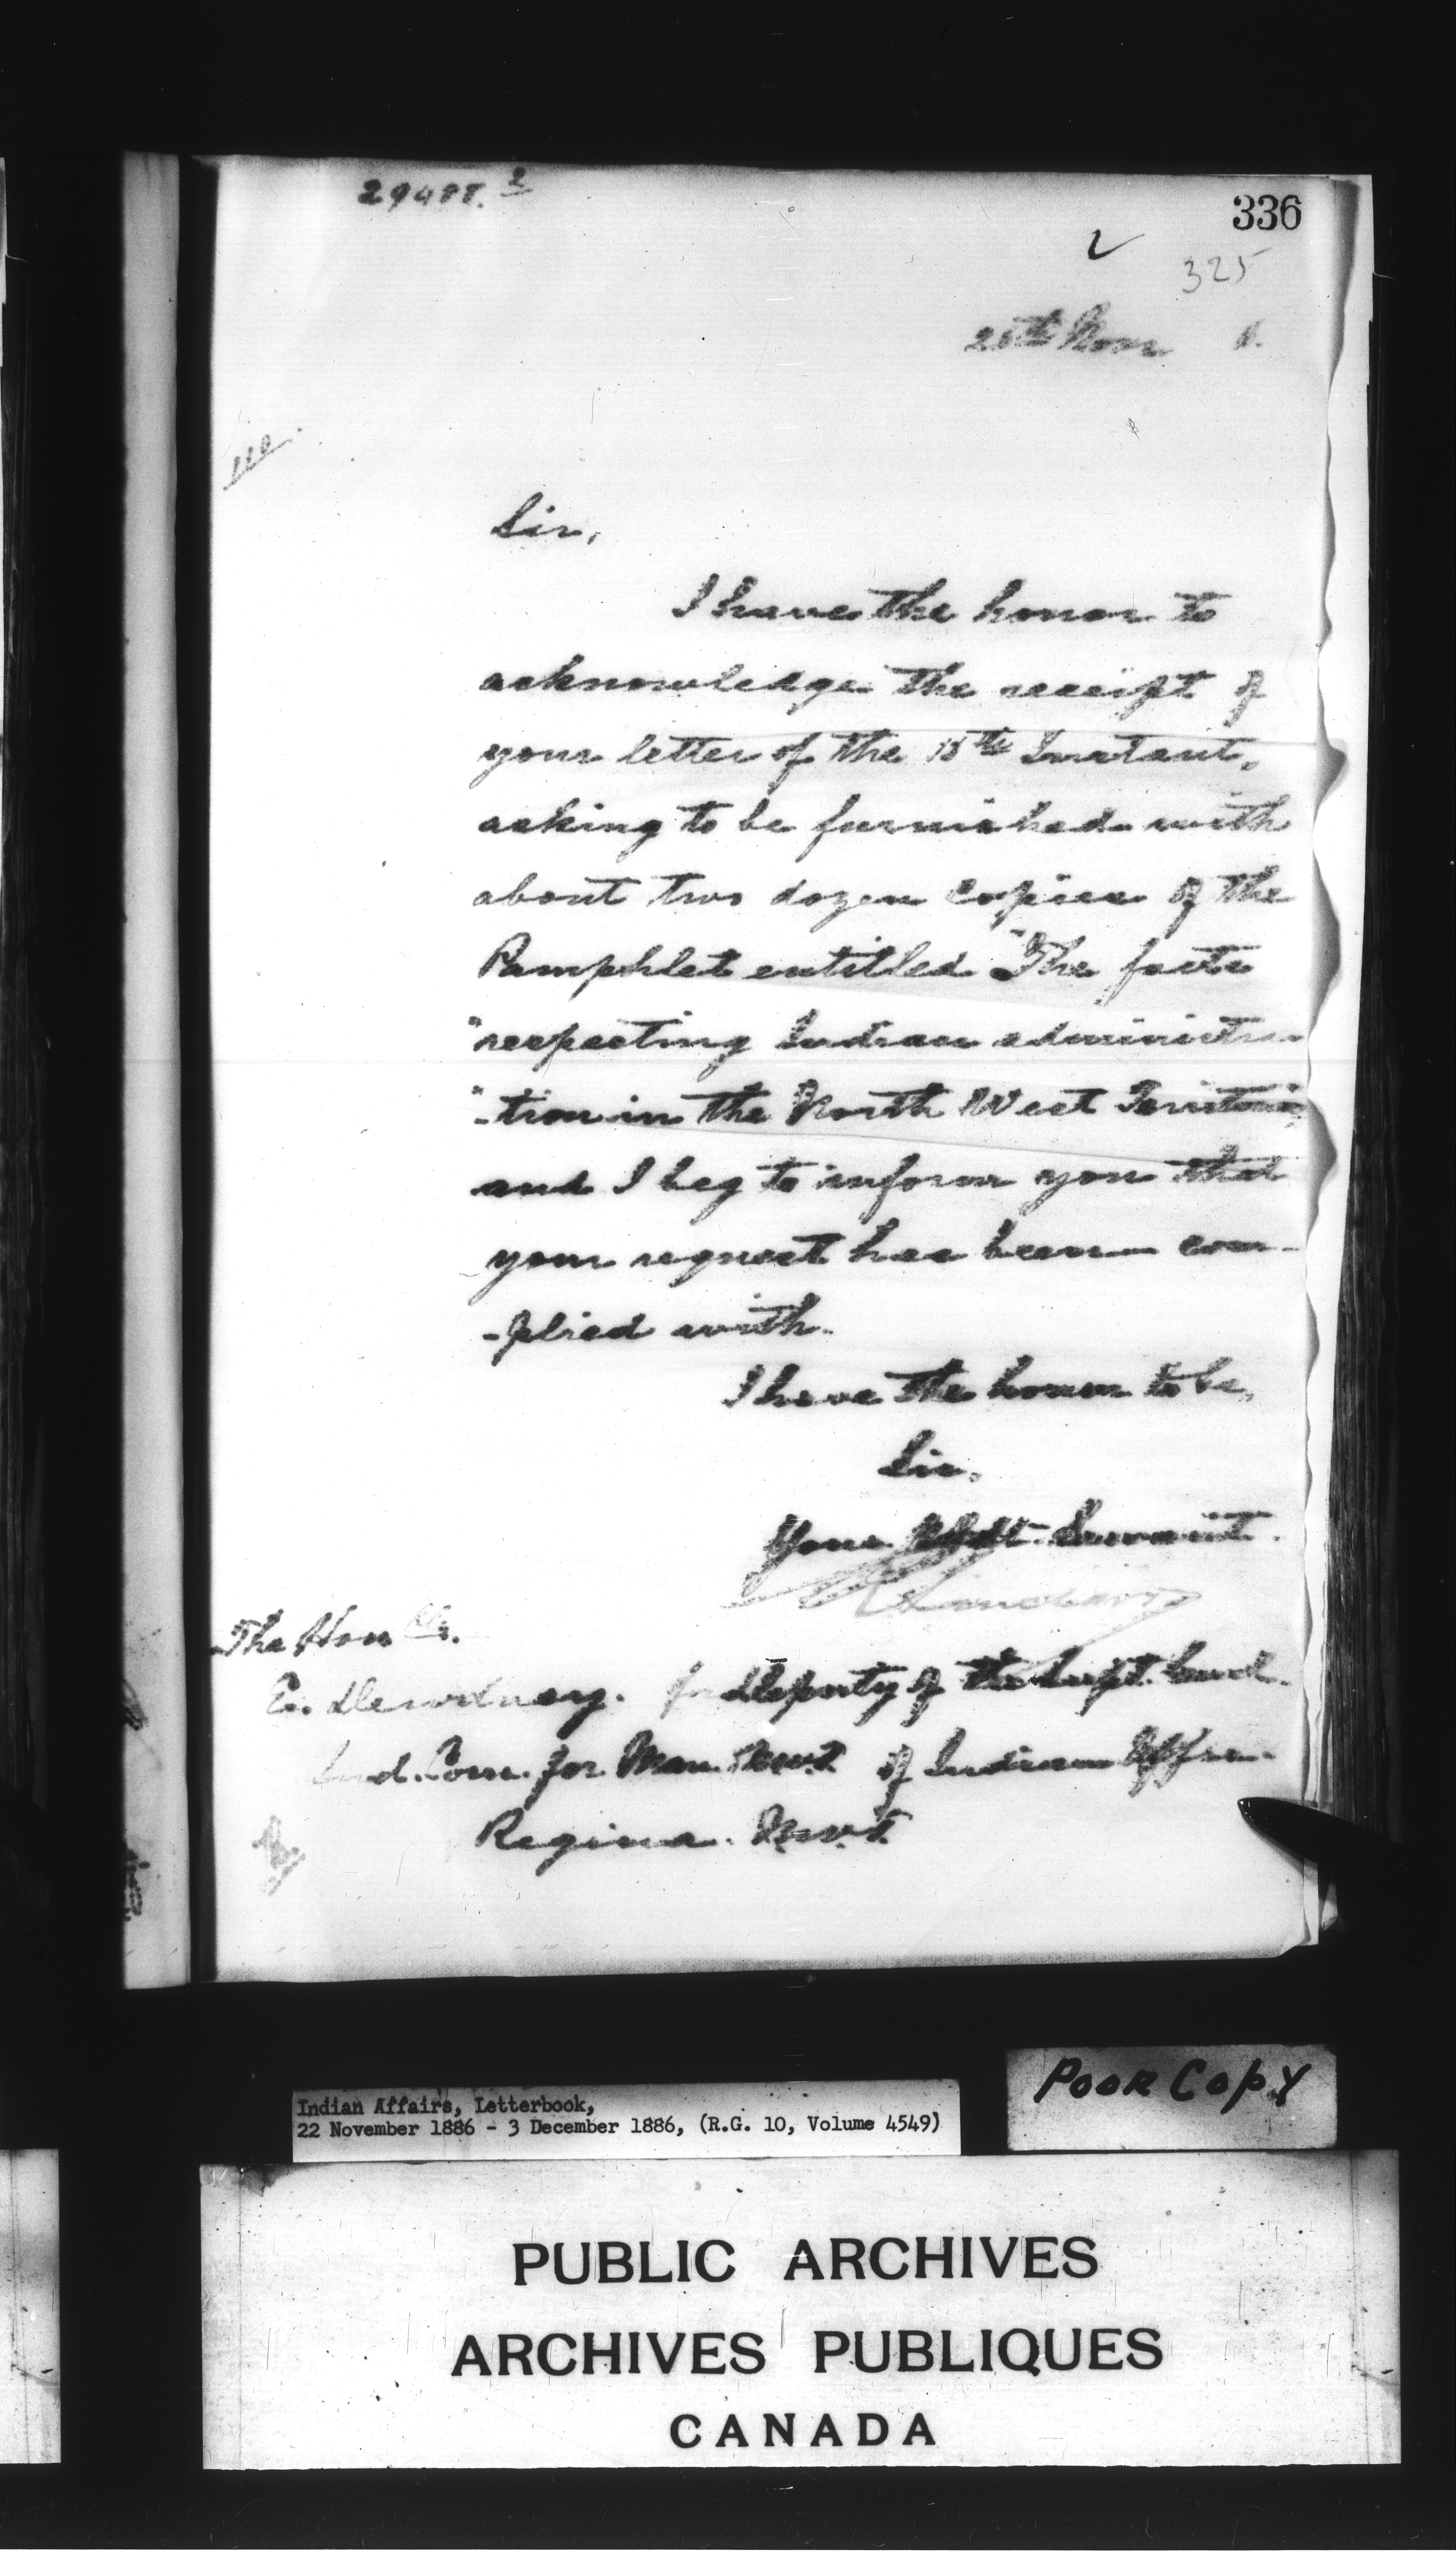 29488. 2
336
325
25th Nov 6.
Sir,
I have the honor to
acknowledge the receipt of
your letter of the 15th Instant,
asking to be furnished with
about two dozen Copies of the
Pamphlet entitled "The facts
"respecting Indian administra-
"-tion in the North West Territories
and I beg to inform you that
your request has been com-
-plied with.
I have the honor to be,
Sir,
Your Obdt. Servant.
The Honble.
E. Dewdney. for Deputy of the Supt. Genl.
Ind. Com. for Man. & N.W.T. of Indian Affrs.
Regina. N.W.T.
Poor Copy
Indian Affairs, Letterbook,
22 November 1886 - 3 December 1886, (R.G. 10, Volume 4549)
PUBLIC ARCHIVES
ARCHIVES PUBLIQUES
CANADA